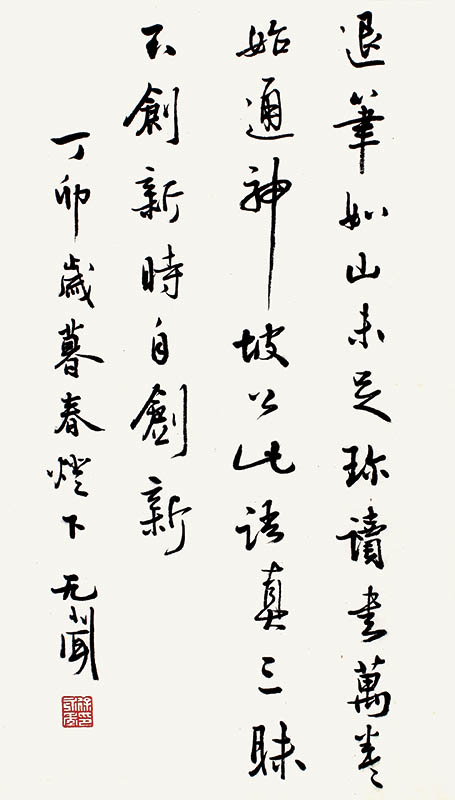 退筆如山未足珎讀書萬卷
始通神坡公此語真三昧
不創新時自創新
丁卯歲暮春燈下 无聞